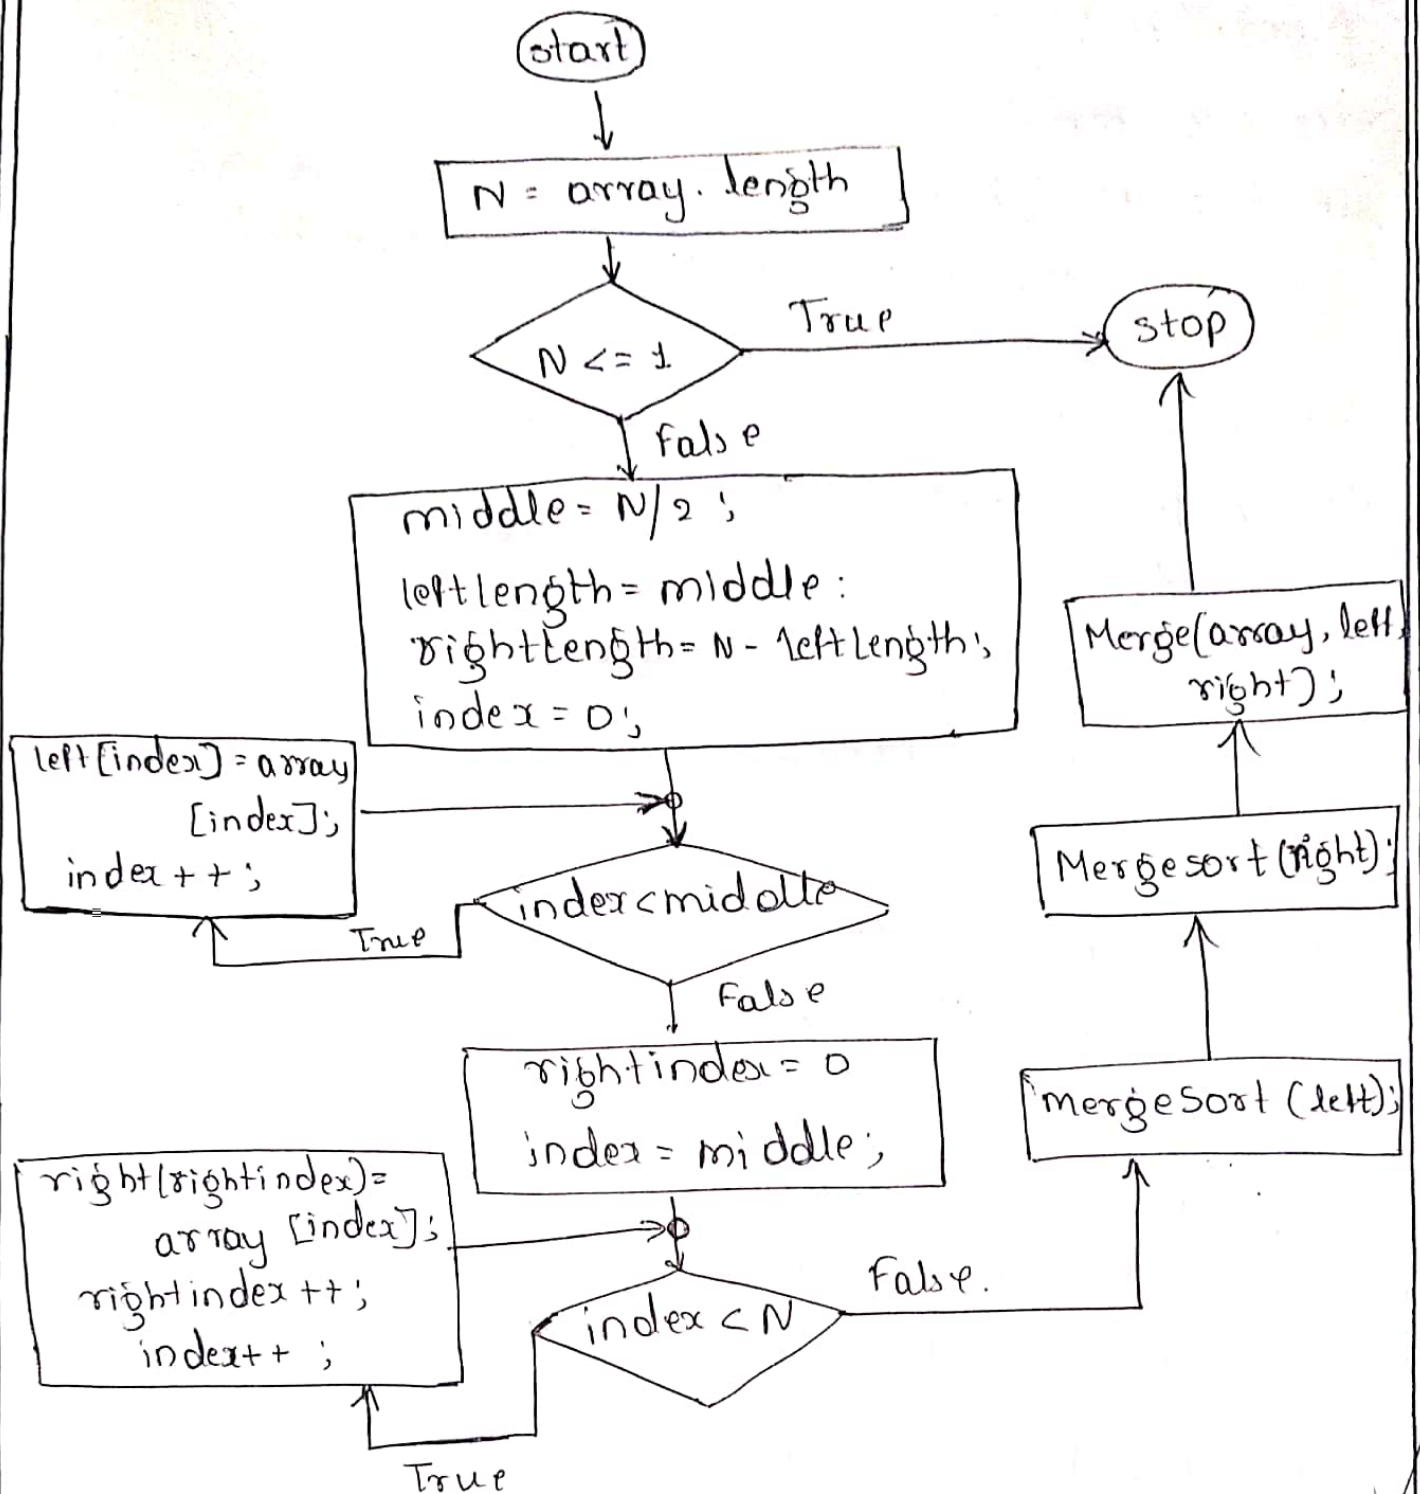 start
N = array. length
N <= 1
True
stop
False
middle = N/2 ;
leftlength = middle :
rightLength = N - leftLength ;
index = 0 ;
Merge(array, left,
right) ;
left [index] = array
[index] ;
index + + ;
index < middle
True
False
Mergesort (right) ;
rightindex = 0
index = middle ;
mergeSort (left) ;
right(rightindex) =
array [index] ;
rightindex ++ ;
index++ ;
index < N
False.
True